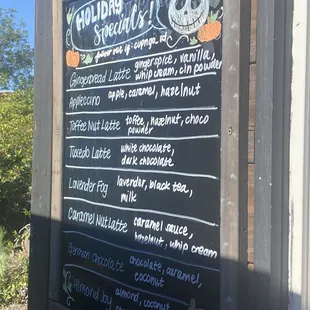 HOLIDAY
Specials!
Gingerbread Latte gingerspice, vanilla,
whip cream, cin powder
Appleccino apple, caramel, hazelnut
Toffee Nut Latte toffee, hazelnut, choco
powder
Tuxedo Latte white chocolate,
dark chocolate
Lavender Fog lavender, black tea,
milk
Caramel Nut Latte caramel sauce,
hazelnut, whip cream
German Chocolate chocolate, caramel,
coconut
Almond Joy almond, coconut